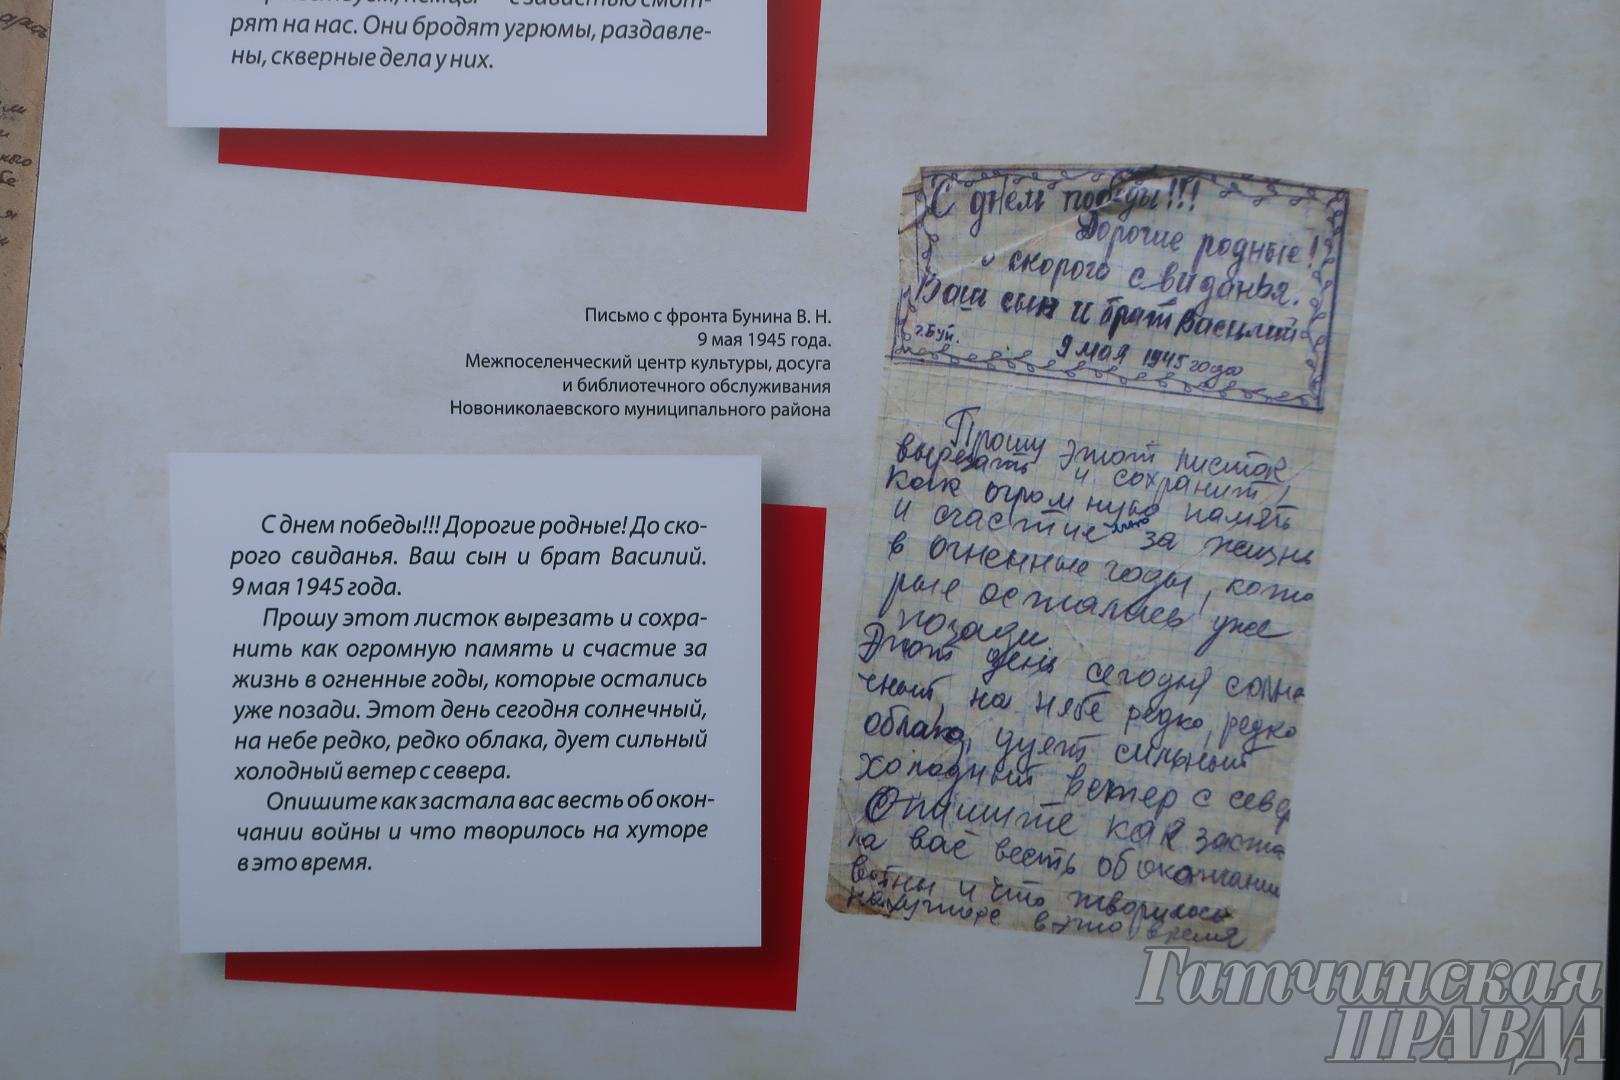 рят на нас. Они бродят угрюмы, раздавле-
ны, скверные дела у них.
Письмо с фронта Бунина В. Н.
9 мая 1945 года.
Межпоселенческий центр культуры, досуга
и библиотечного обслуживания
Новониколаевского муниципального района
С днем победы!!! Дорогие родные! До ско-
рого свиданья. Ваш сын и брат Василий.
9 мая 1945 года.
Прошу этот листок вырезать и сохра-
нить как огромную память и счастие за
жизнь в огненные годы, которые остались
уже позади. Этот день сегодня солнечный,
на небе редко, редко облака, дует сильный
холодный ветер с севера.
Опишите как застала вас весть об окон-
чании войны и что творилось на хуторе
в это время.
С днем победы!!!
Дорогие родные!
скорого свиданья.
Ваш сын и брат Василий
г. Буй.
9 мая 1945 года
Прошу этот листок
вырезать и сохранить,
как огромную память
и счастие за жизнь
в огненные годы, кото
рые остались уже
позади.
Этот день сегодня солне
чный, на небе редко, редко
облака, дует сильный
холодный ветер с север
Опишите как заста
ла вас весть об окончании
войны и что творилось
на хуторе в это время
Гатчинская
ПРАВДА